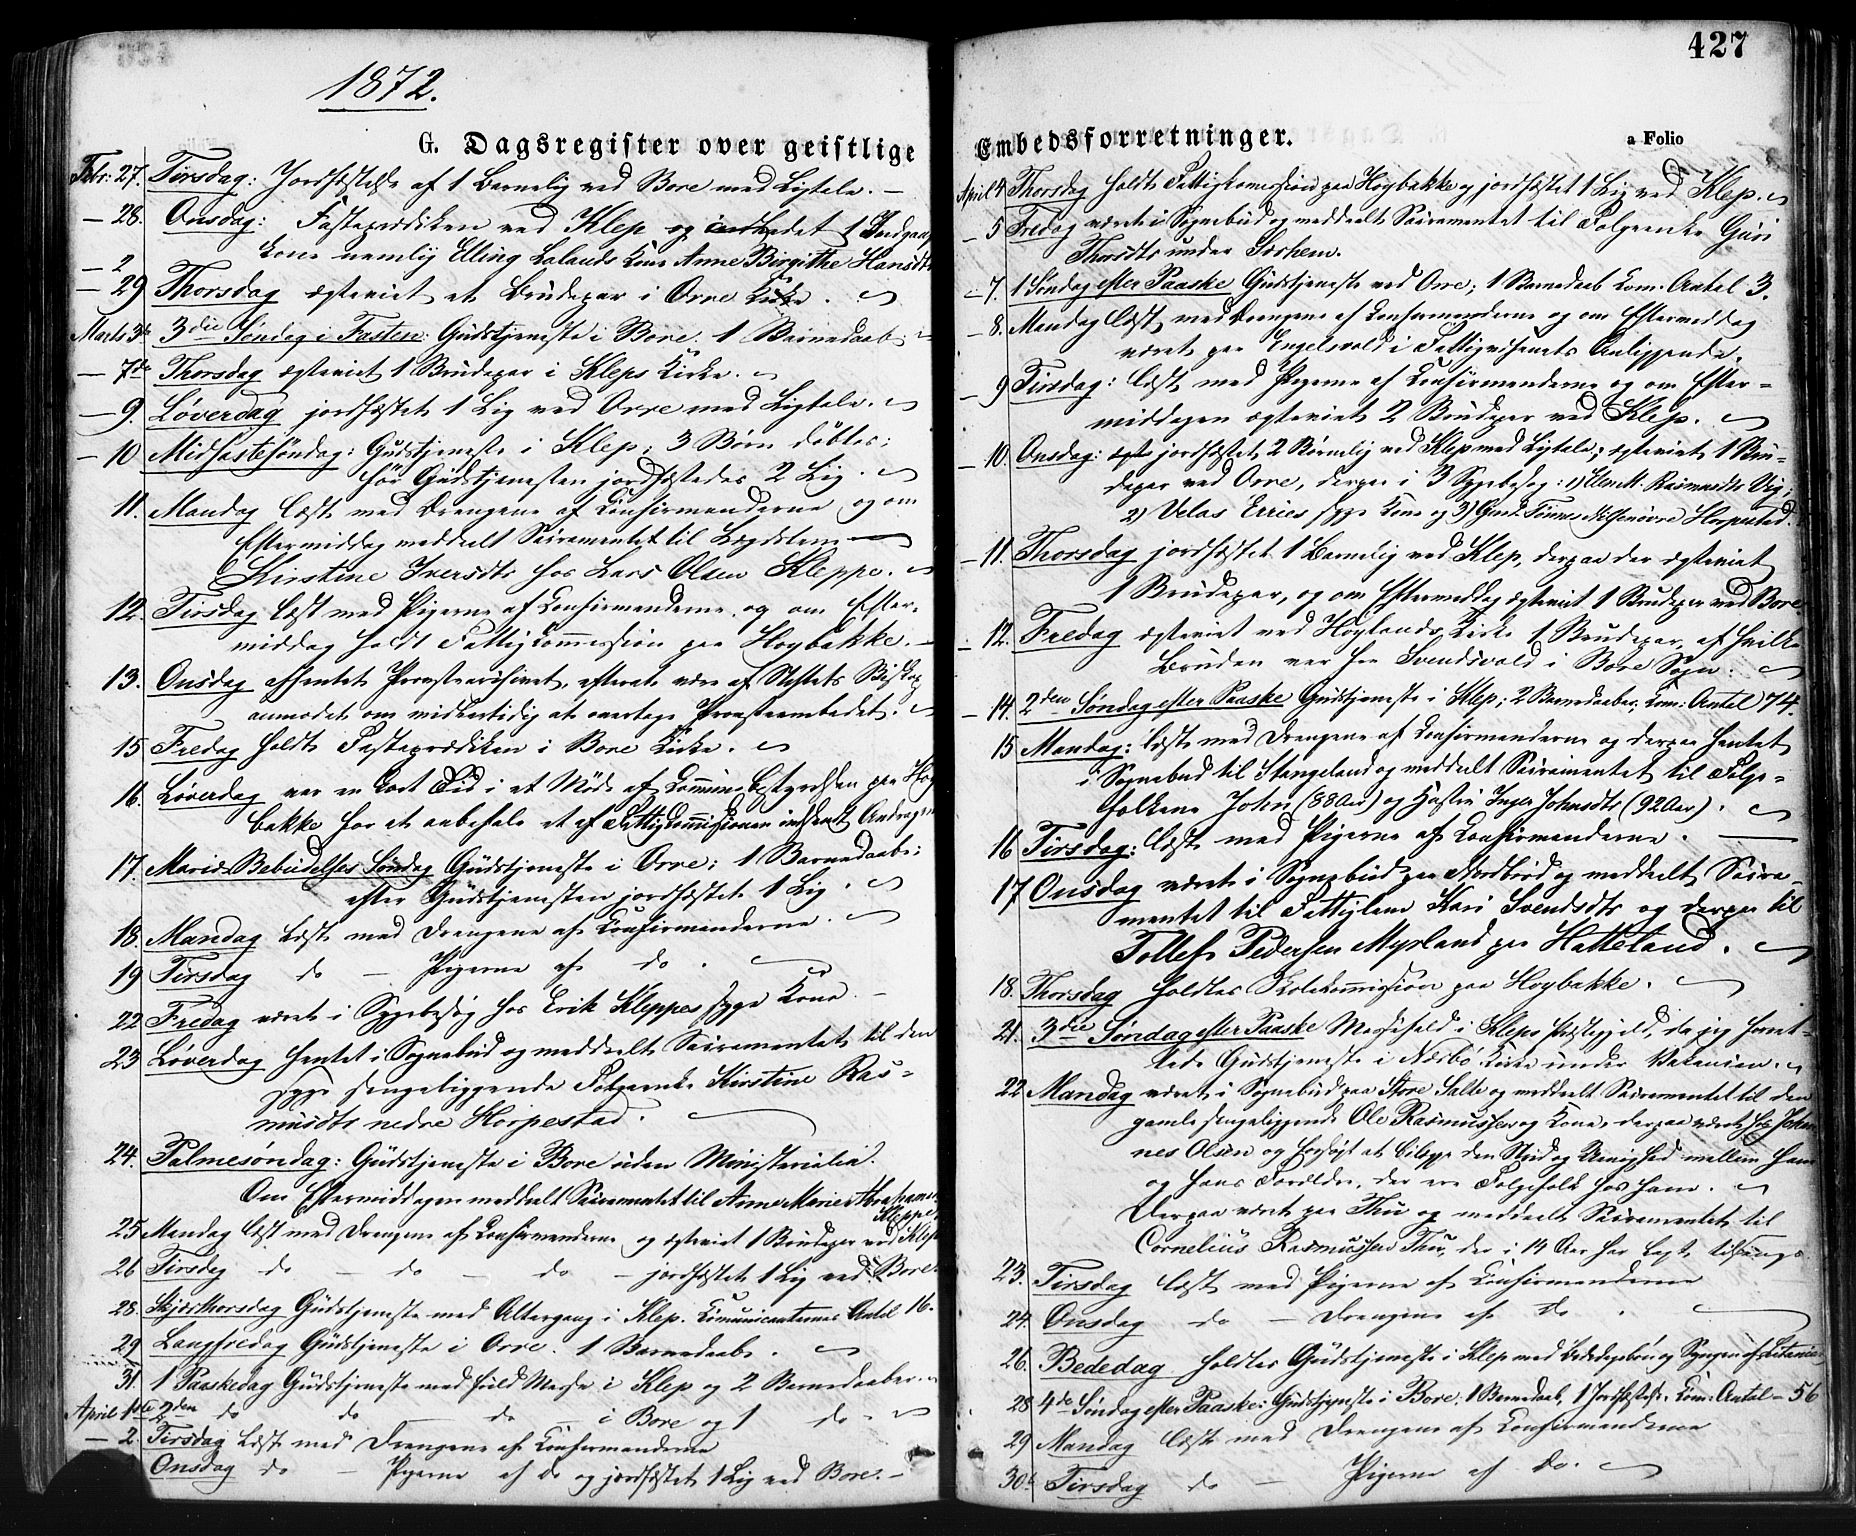 1872.
G. Dagsregister over geistlige
Febr: 27. Tirsdag: Jordfæstelse af 1 Barnelig ved Bore med Ligtale. —
— 28. Onsdag: Fasteprædiken ved Klep og indledet 1 Indgangs
kone nemlig Elling Lalands Kone Anne Birgithe Hansdtr
— 2
— 29 Thorsdag ægteviet et Brudepar i Orre Kirke.
Marts 3de 3die Søndag i Fasten: Gudstjeneste i Bore. 1 Barnedaab.
— 7de Thorsdag ægteviet 1 Brudepar i Kleps Kirke.
— 9. Løverdag jordfæstet 1 Lig ved Orre med Ligtale.
— 10 Midfastesøndag: Gudstjeneste i Klep; 3 Børn døbtes;
før Gudstjenesten jordfæstedes 2 Lig.
11. Mandag læst med Drengene af Confirmanderne og om
Eftermiddag meddeelt Sacramentet til Lægdslem
Kirstine Iversdtr hos Lars Olsen Kleppe.
12. Tirsdag læst med Pigerne af Confirmanderne og om Efter-
middag holdt Fattigkommission paa Hoybakke. —
13. Onsdag afhentet Provstearchivet, efterat være af Stiftets Biskop
anmodet om midlertidig at overtage Provsteembedet.
15 Fredag holdt Fasteprædiken i Bore Kirke.
16. Løverdag var en kort Tid i et Møde af Communebestyrelsen paa Hoy
bakke for at anbefale et af Fattigcommissionen indsendt Andragende
17. Mariæ Bebudelses Søndag Gudstjeneste i Orre; 1 Barnedaab;
efter Gudstjenesten jordfæstet 1 Lig.
18. Mandag læst med Drengene af Confirmanderne.
19 Tirsdag do — Pigerne af do.
22 Fredag været i Sygebesøg hos Erik Kleppes syge Kone. —
23 Løverdag hentet i Sognebud og meddeelt Sacramentet til den
syge sengeliggende Folgeenke Kirstine Ras-
musdtr nedre Horpestad.
24. Palmesøndag: Gudstjeneste i Bore uden Ministerialia.
Om Eftermiddagen meddeelt Sacramentet til Anne Marie Abrahamsen
Kleppe.
25 Mandag læst med Drengene af Confirmanderne og ægteviet 1 Brudepar ved Klep
26 Tirsdag do — do — do — jordfæstet 1 Lig ved Bore.
28. Skjærthorsdag Gudstjeneste med Altergang i Klep. Comunicanternes Antal 16.
29 Langfredag Gudstjeneste i Orre. 1 Barnedaab.
31. 1 Paaskedag Gudstjeneste med fuld Messe i Klep og 2 Barnedaaber.
April 1ste 2den do do — do — i Bore og 1 do.
— 2. Tirsdag læst med Drengene af Confirmanderne
Onsdag do — Pigerne af do og jordfæstet 1 Lig ved Bore. —
427
Embedsforretninger.
a Folio
April 4 Thorsdag holdt Fattigkomission paa Hoybakke og jordfæstet 1 Lig ved Klep.
— 5 Fredag været i Sognebud og meddeelt Sacramentet til Folgeenke Guri
Thorsdtr under Sorhem.
— 7. 1 Søndag efter Paaske Gudstjeneste ved Orre; 1 Barnedaab Kom. Antal 3.
— 8. Mandag læst med Drengene af Confirmanderne og om Eftermiddag
været paa Engelsvold i Fattigvæsenets Anliggende.
— 9 Tirsdag: læst med Pigerne af Confirmanderne og om Efter=
middagen ægteviet 2 Brudepar ved Klep.
— 10. Onsdag: jordfæstet 2 Børnelig ved Klep med Ligtale; ægteviet 1 Bru-
depar ved Orre, derpaa i 3 Sygebesøg: 1) Elen M. Rasmusdtr Vig;
2) Velas Erries syge Kone og 3) Gmd. Tønnes Nilsen øvre Horpestad.
— 11. Thorsdag jordfæstet 1 Barnelig ved Klep, derpaa der ægteviet
1 Brudepar, og om Eftermiddag ægteviet 1 Brudepar ved Bore
— 12. Fredag ægteviet ved Hoylands Kirke 1 Brudepar, af hvilke
Bruden var fra Svendsvold i Bore Sogn.
— 14. 2den Søndag efter Paaske Gudstjeneste i Klep; 2 Barnedaaber; Kom: Antal 74.
15 Mandag: læst med Drengene af Confirmanderne og derpaa hentet
i Sognebud til Stangeland og meddeelt Sacramentet til Folge-
folkene John (88 Aar) og Hustru Inger Johnsdtr (92 Aar).
16 Tirsdag: læst med Pigerne af Confirmanderne.
17 Onsdag været i Sognebud paa Nordbrød og meddeelt Sacra-
mentet til Fattiglem Kari Svendsdtr og derpaa til
Tollef Pedersen Myrland paa Hatteland.
18. Thorsdag holdtes Skolekommission paa Hoybakke.
21. 3die Søndag efter Paaske Messefald i Kleps Præstegjeld, da jeg forret-
tede Gudstjeneste i Næsbø Kirke under Vakancen.
22 Mandag været i Sognebud paa Store Salte og meddeelt Sacramentet til den
gamle sengeliggende Ole Rasmussen og Kone, derpaa været hos Johan
nes Olsen og forsøgt at bilegge den Strid og Uenighed mellem ham
og hans Foreldre, der ere Folgefolk hos ham.
Derpaa været paa Thu og meddeelt Sacramentet til
Cornelius Rasmussen Thu, der i 14 Aar har lagt tilsengs.
23. Tirsdag læst med Pigerne af Confirmanderne
24. Onsdag do — Drengene af do.
26. Bededag holdtes Gudstjeneste i Klep med Bededagsbøn og Syngen af Litaniet
28 4de Søndag efter Paaske: Gudstjeneste i Bore. 1 Barnedaab, 1 Jordfæstelse. Kom: Antal — 56
29 Mandag læst med Drengene af Confirmanderne
30te Tirsdag do — Pigerne af do.